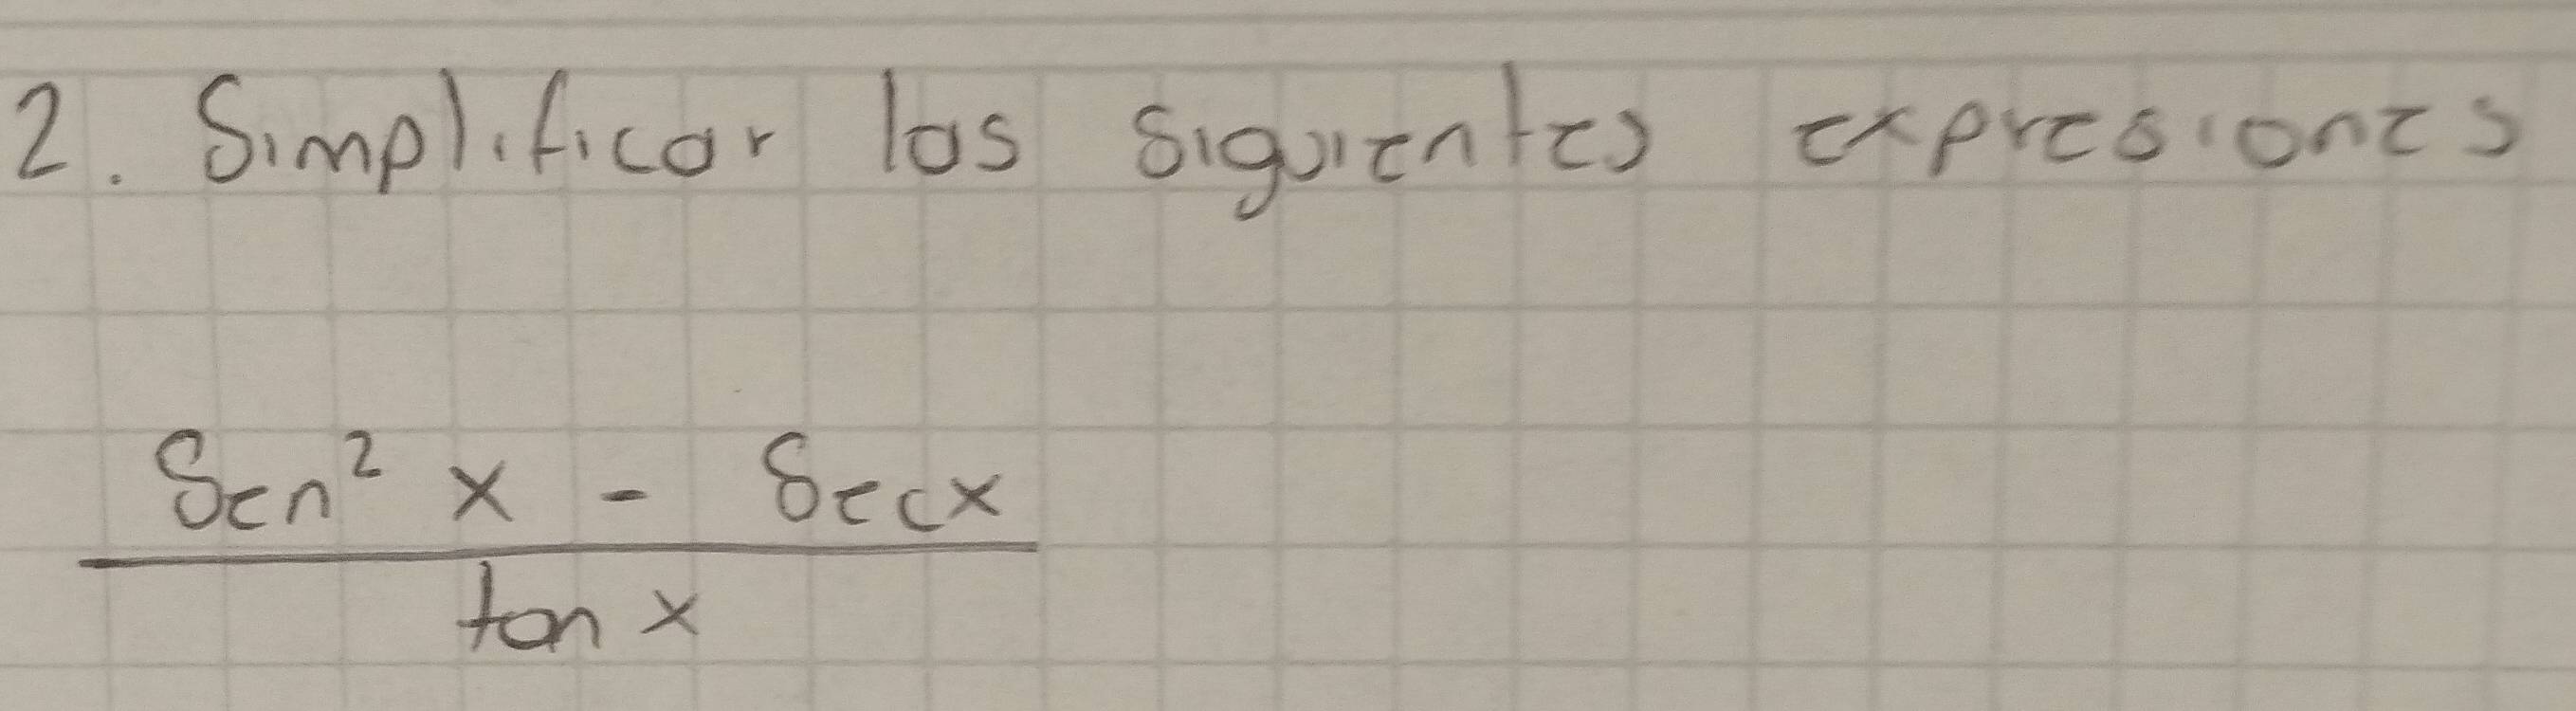 2. Simplificar las siguientes expresiones
Sen² x - Sec x
tan x